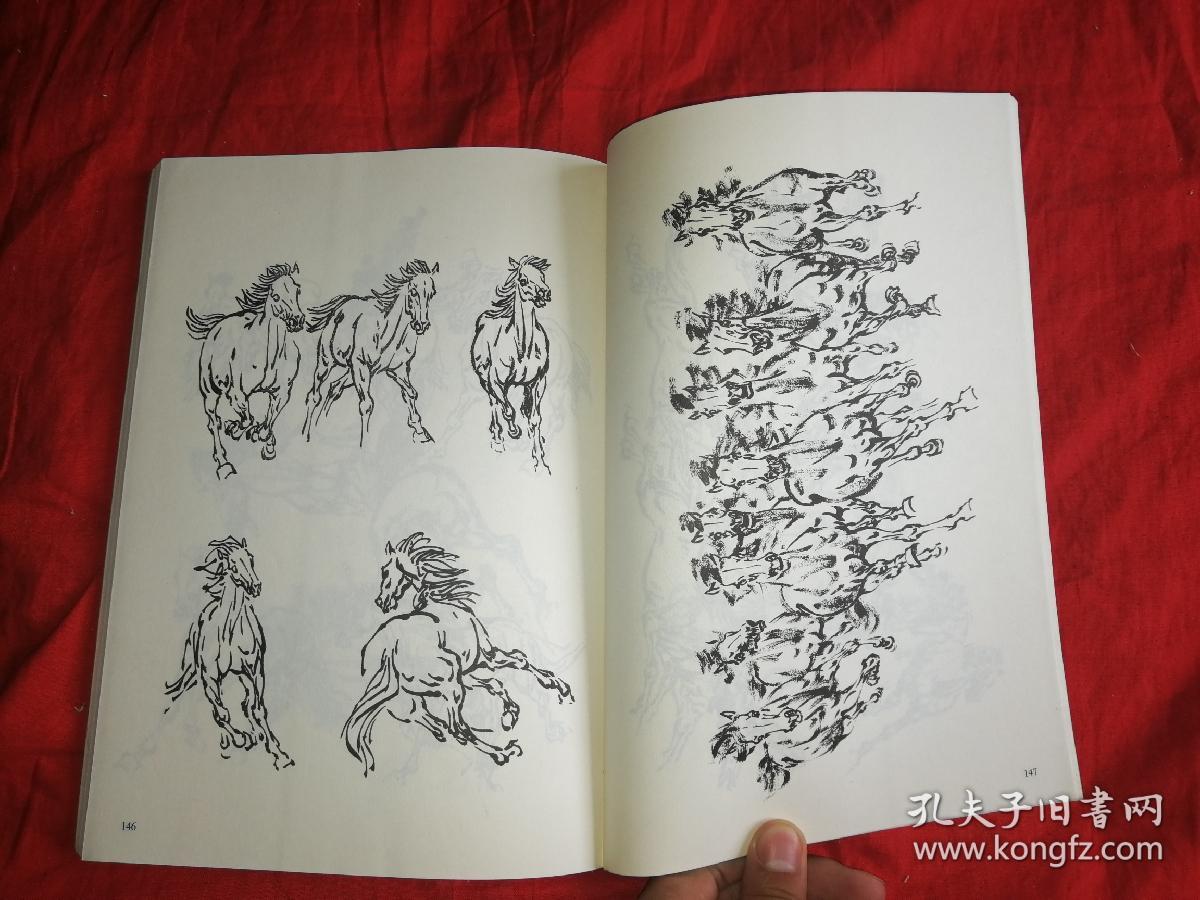 146
147
孔夫子旧書网
www.kongfz.com